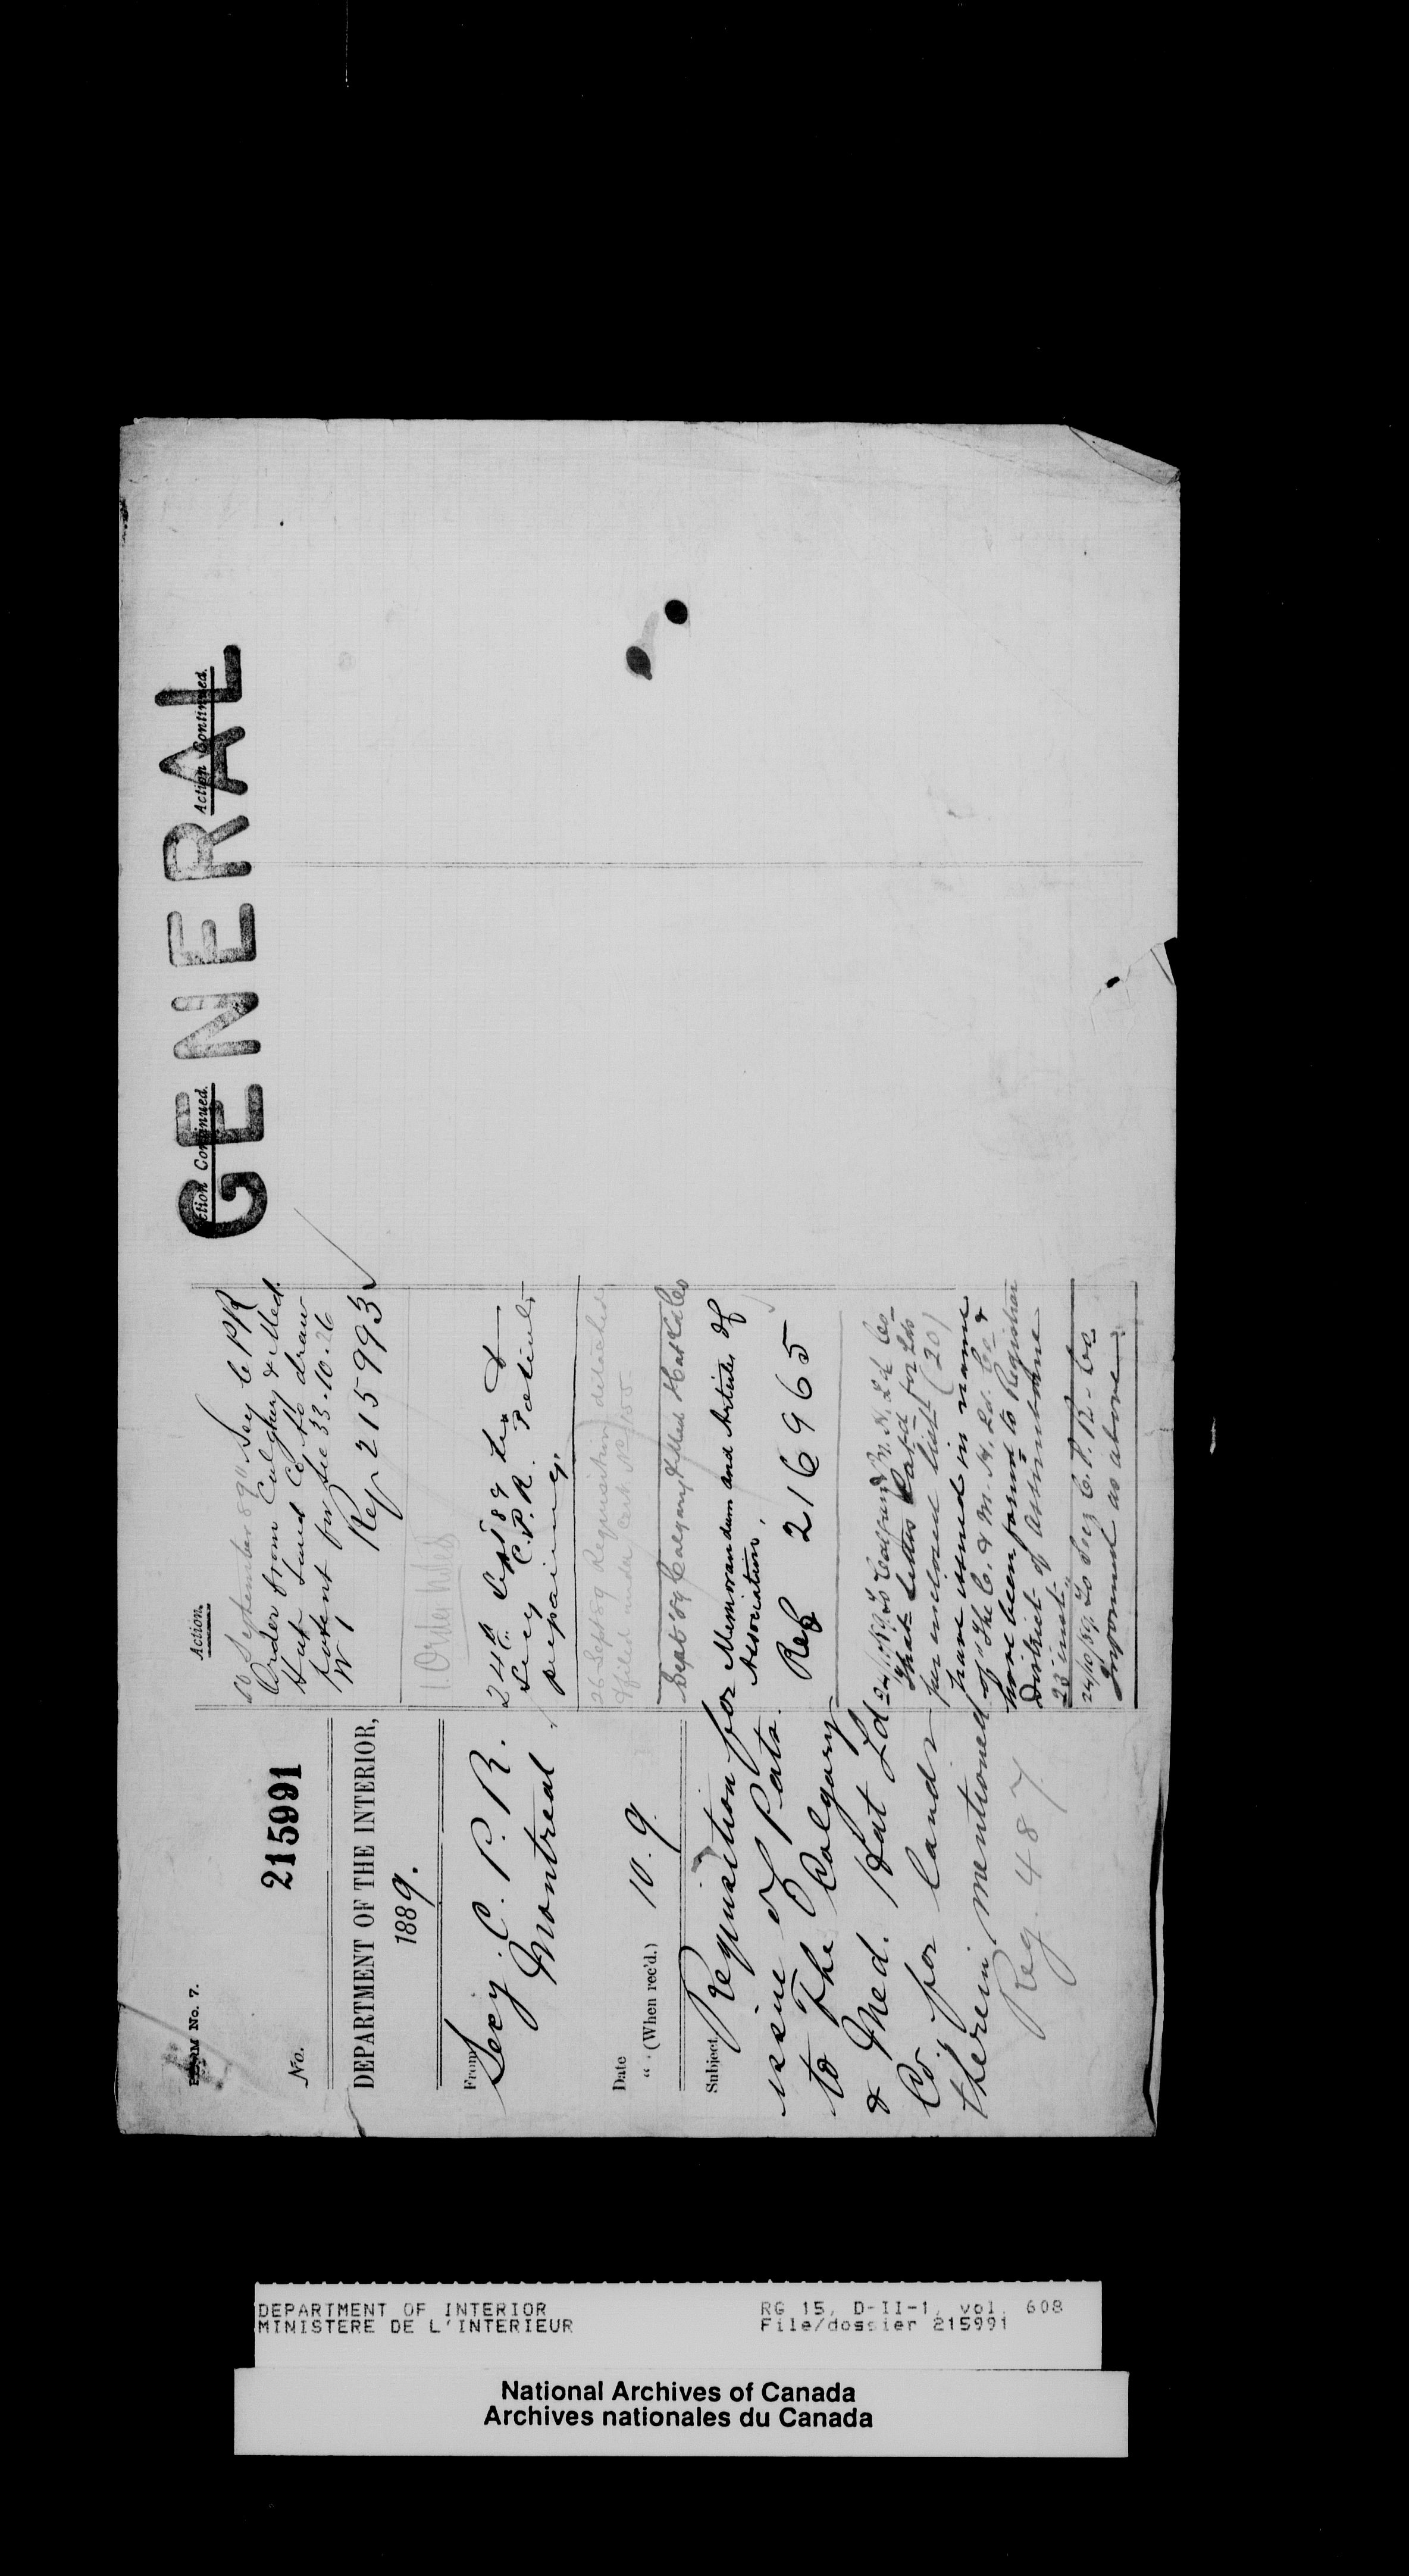 FORM No. 7.
No. 215991
DEPARTMENT OF THE INTERIOR,
1889.
From
Secy. C. P. R.
Montreal
Date
" (When rec'd.) 10. 9.
Subject,
Requisition for
issue of Pats.
to The Calgary
& Med. Hat Ld
Co. for lands
therein mentioned
Reg. 487
Action.
10 September 89 Secy C P R
Order from Calgary & Med.
Hat Land Co to draw
patent for Sec 33.10.26
W
Ref 215993
1. Order noted
24th Sept 89 to
Secy C.P.R. Patents
preparing.
26 Sept 89 Requisition detached
& filed under
Sept '89 Calgary & Med Hat Ld Co
Memorandum and Articles of
Association,
Ref 216965
24/10/89 To Calgary & M. H. Ld Co
that Letters Pat for Lds
per enclosed list (20)
have issued in name
of The C. & M. H. Ld. Co &
have been forwd to Registrar
District of Assiniboine
23 inst.
24/10/89 To Secy C. P. R. Co
Informed as above
GENERAL
Action Continued.
Action Continued.
DEPARTMENT OF INTERIOR
MINISTERE DE L'INTERIEUR
RG 15, D-II-1, vol. 608
File/dossier 215991
National Archives of Canada
Archives nationales du Canada